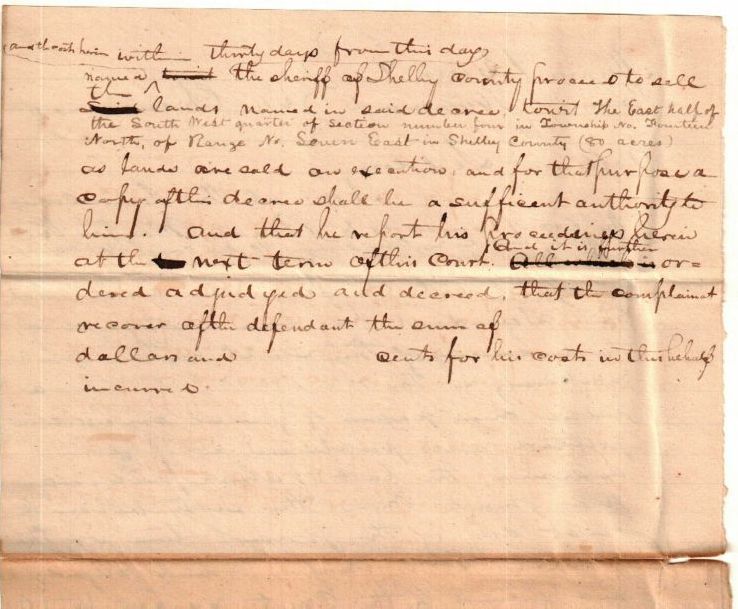 (and the costs herein within thirty days from this day
named the sheriff of Shelby County proceed to sell
the lands named in said decree towit The East half of
the South West quarter of section number four in Township No. Fourteen
North, of Range No. Seven East in Shelby County (80 acres)
as lands are sold on execution, and for that purpose a
copy of this decree shall be a sufficient authority to
him. And that he report his proceedings herein
And it is further
at the next term of this Court. or=
dered adjudged and decreed, that the complainat
recover of the defendant the sum of
dollars and cents for his costs in this behalf
incurred.